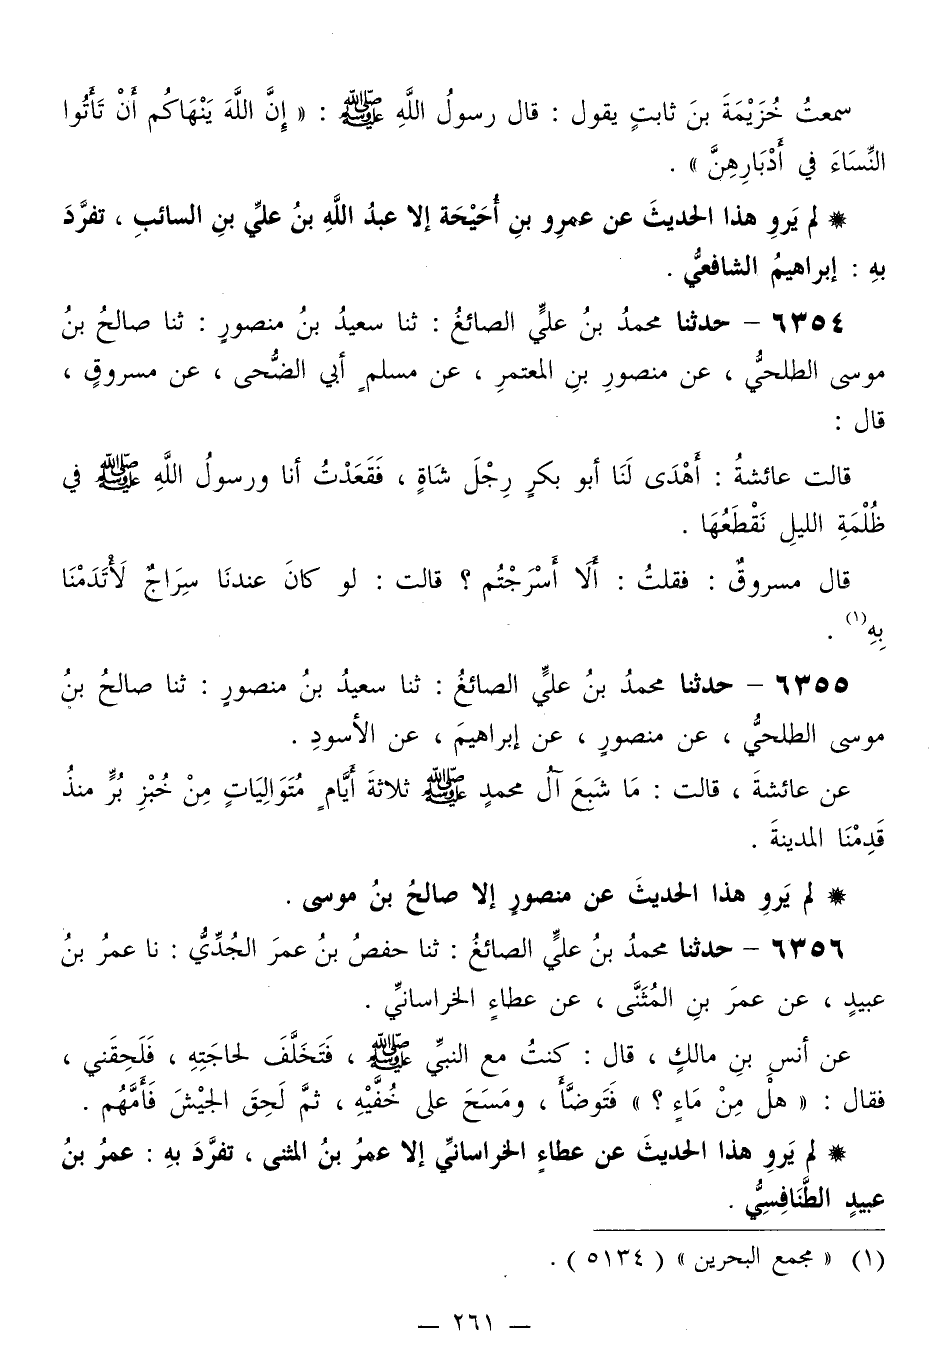 سمعتُ خُزَيْمَةَ بنَ ثابتٍ يقول : قال رسولُ اللَّهِ ﷺ : « إِنَّ اللَّهَ يَنْهَاكُم أَنْ تَأْتُوا
النِّسَاءَ في أَدْبَارِهِنَّ » .
* لم يَروِ هذا الحديثَ عن عمرِو بنِ أُحَيْحَة إلا عبدُ اللَّهِ بنُ عليِّ بنِ السائبِ ، تفرَّدَ
بهِ : إبراهيمُ الشافعيُّ .
٦٣٥٤ – حدثنا محمدُ بنُ عليٍّ الصائغُ : ثنا سعيدُ بنُ منصورٍ : ثنا صالحُ بنُ
موسى الطلحيُّ ، عن منصورِ بنِ المعتمرِ ، عن مسلمٍ أبي الضُّحى ، عن مسروقٍ ،
قال :
قالت عائشةُ : أَهْدَى لَنَا أبو بكرٍ رِجْلَ شَاةٍ ، فَقَعَدْتُ أنا ورسولُ اللَّهِ ﷺ في
ظُلْمَةِ الليلِ نَقْطَعُهَا .
قال مسروقٌ : فقلتُ : أَلَا أَسْرَجْتُم ؟ قالت : لو كانَ عندنَا سِرَاجٌ لَأْتَدَمْنَا
بِهِ(١) .
٦٣٥٥ – حدثنا محمدُ بنُ عليٍّ الصائغُ : ثنا سعيدُ بنُ منصورٍ : ثنا صالحُ بنُ
موسى الطلحيُّ ، عن منصورٍ ، عن إبراهيمَ ، عن الأسودِ .
عن عائشةَ ، قالت : مَا شَبِعَ آلُ محمدٍ ﷺ ثلاثةَ أَيَّامٍ مُتَوَالِيَاتٍ مِنْ خُبْزِ بُرٍّ منذُ
قَدِمْنَا المدينةَ .
* لم يَروِ هذا الحديثَ عن منصورٍ إلا صالحُ بنُ موسى .
٦٣٥٦ – حدثنا محمدُ بنُ عليٍّ الصائغُ : ثنا حفصُ بنُ عمرَ الجُدِّيُّ : نا عمرُ بنُ
عبيدٍ ، عن عمرَ بنِ المُثَنَّى ، عن عطاءٍ الخراسانيِّ .
عن أنسِ بنِ مالكٍ ، قال : كنتُ مع النبيِّ ﷺ ، فَتَخَلَّفَ لحاجَتِهِ ، فَلَحِقَني ،
فقال : « هلْ مِنْ مَاءٍ ؟ » فَتَوضَّأَ ، ومَسَحَ على خُفَّيْهِ ، ثمَّ لَحِقَ الجيْشَ فَأَمَّهُم .
* لم يَروِ هذا الحديثَ عن عطاءٍ الخراسانيِّ إلا عمرُ بنُ المثنى ، تفرَّدَ بهِ : عمرُ بنُ
عبيدٍ الطَّنَافِسِيُّ .
(١) « مجمع البحرين » ( ٥١٣٤ ) .
— ٢٦١ —